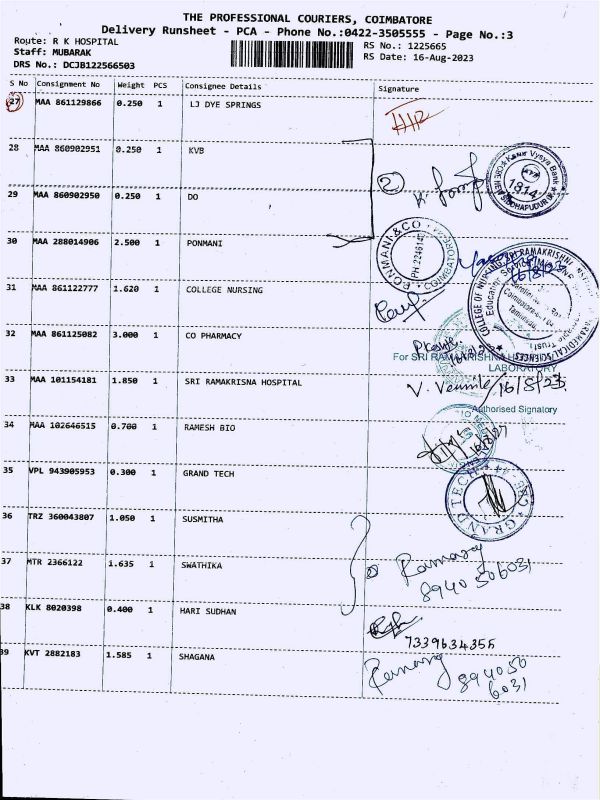 THE PROFESSIONAL COURIERS, COIMBATORE
Delivery Runsheet - PCA - Phone No.:0422-3505555 - Page No.:3
Route: R K HOSPITAL
Staff: MUBARAK
DRS No.: DCJB122566503
RS No.: 1225665
RS Date: 16-Aug-2023
S No Consignment No Weight PCS Consignee Details Signature
27 MAA 861129866 0.250 1 LJ DYE SPRINGS
28 MAA 860902951 0.250 1 KVB
29 MAA 860902950 0.250 1 DO
2
Karur Vysya Bank
1814
SIDDHAPUDUR
30 MAA 288014906 2.500 1 PONMANI
PONMANI & CO
COIMBATORE
31 MAA 861122777 1.620 1 COLLEGE NURSING
COLLEGE OF NURSING, SRI RAMAKRISHNA
PARAMEDICAL SCIENCES
32 MAA 861125082 3.000 1 CO PHARMACY
For SRI RAMAKRISHNA
LABORATORY
33 MAA 101154181 1.850 1 SRI RAMAKRISNA HOSPITAL
16/8/23
Authorised Signatory
34 MAA 102646515 0.700 1 RAMESH BIO
35 VPL 943905953 0.300 1 GRAND TECH
GRAND TECH
CBE - 44
36 TRZ 360043807 1.050 1 SUSMITHA
37 MTR 2366122 1.635 1 SWATHIKA
8940506031
38 KLK 8020398 0.400 1 HARI SUDHAN
7339634355
39 KVT 2882183 1.585 1 SHAGANA
894050
6031